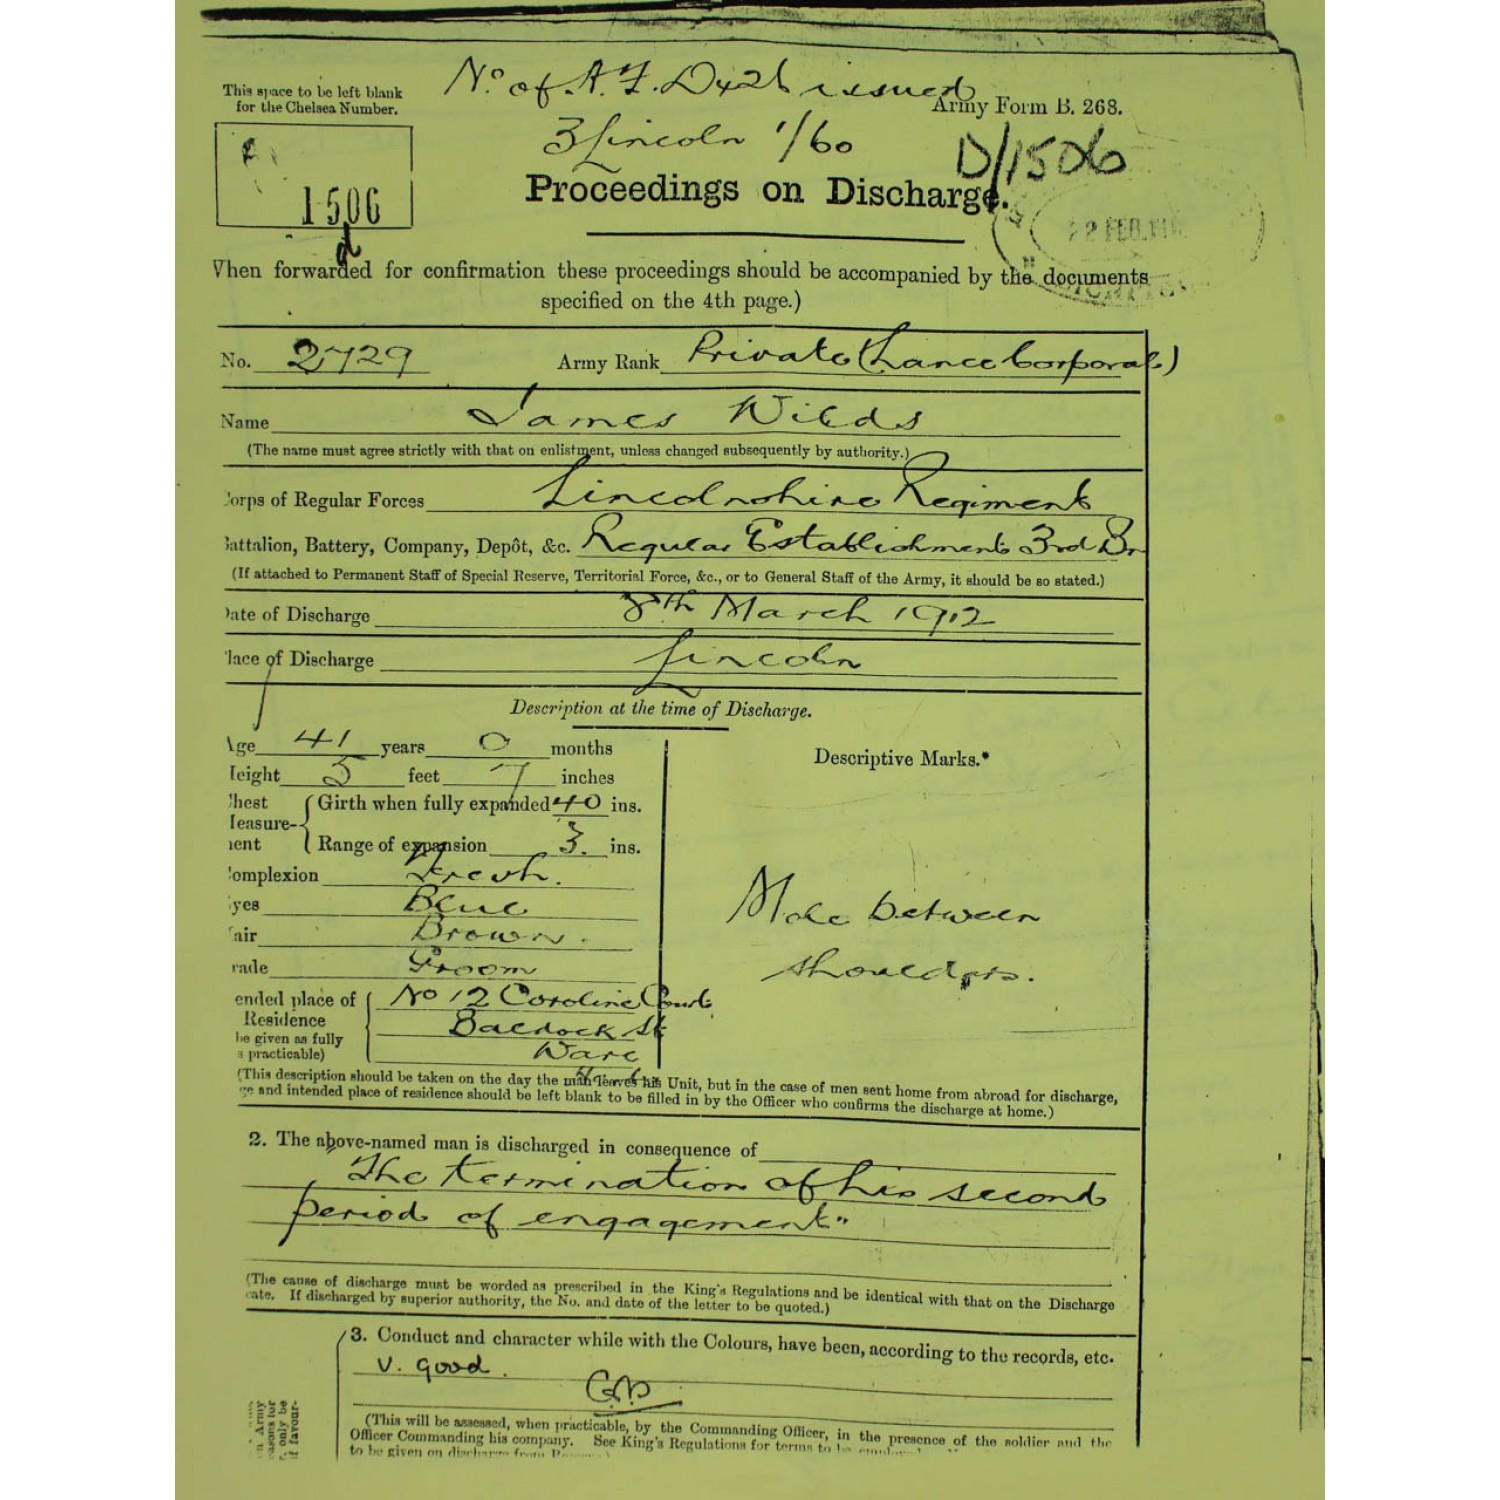 This space to be left blank
for the Chelsea Number.
No. of A.F. D426 issued
Army Form B. 268.
3 Lincoln 1/60
D/1506
1506
d
Proceedings on Discharge.
22 FEB.
When forwarded for confirmation these proceedings should be accompanied by the documents
specified on the 4th page.)
No. 2729 Army Rank Private (Lance Corporal)
Name James Wilds
(The name must agree strictly with that on enlistment, unless changed subsequently by authority.)
Corps of Regular Forces Lincolnshire Regiment
Battalion, Battery, Company, Depôt, &c. Regular Establishment 3rd Bn
(If attached to Permanent Staff of Special Reserve, Territorial Force, &c., or to General Staff of the Army, it should be so stated.)
Date of Discharge 8th March 1912
Place of Discharge Lincoln
Description at the time of Discharge.
Age 41 years 0 months
Height 5 feet 7 inches
Chest Measurement
Girth when fully expanded 40 ins.
Range of expansion 3. ins.
Complexion Fresh.
Eyes Blue
Hair Brown.
Trade Groom
Intended place of Residence
be given as fully
as practicable)
No 12 Caroline Court
Baldock St
Ware
Descriptive Marks.*
Mole between
shoulders.
(This description should be taken on the day the man leaves his Unit, but in the case of men sent home from abroad for discharge,
age and intended place of residence should be left blank to be filled in by the Officer who confirms the discharge at home.)
2. The above-named man is discharged in consequence of
"The termination of his second
period of engagement"
(The cause of discharge must be worded as prescribed in the King's Regulations and be identical with that on the Discharge
cate. If discharged by superior authority, the No. and date of the letter to be quoted.)
3. Conduct and character while with the Colours, have been, according to the records, etc.
v. good.
(This will be assessed, when practicable, by the Commanding Officer, in the presence of the soldier and the
Officer Commanding his company. See King's Regulations for terms to be
to be given on discharge from